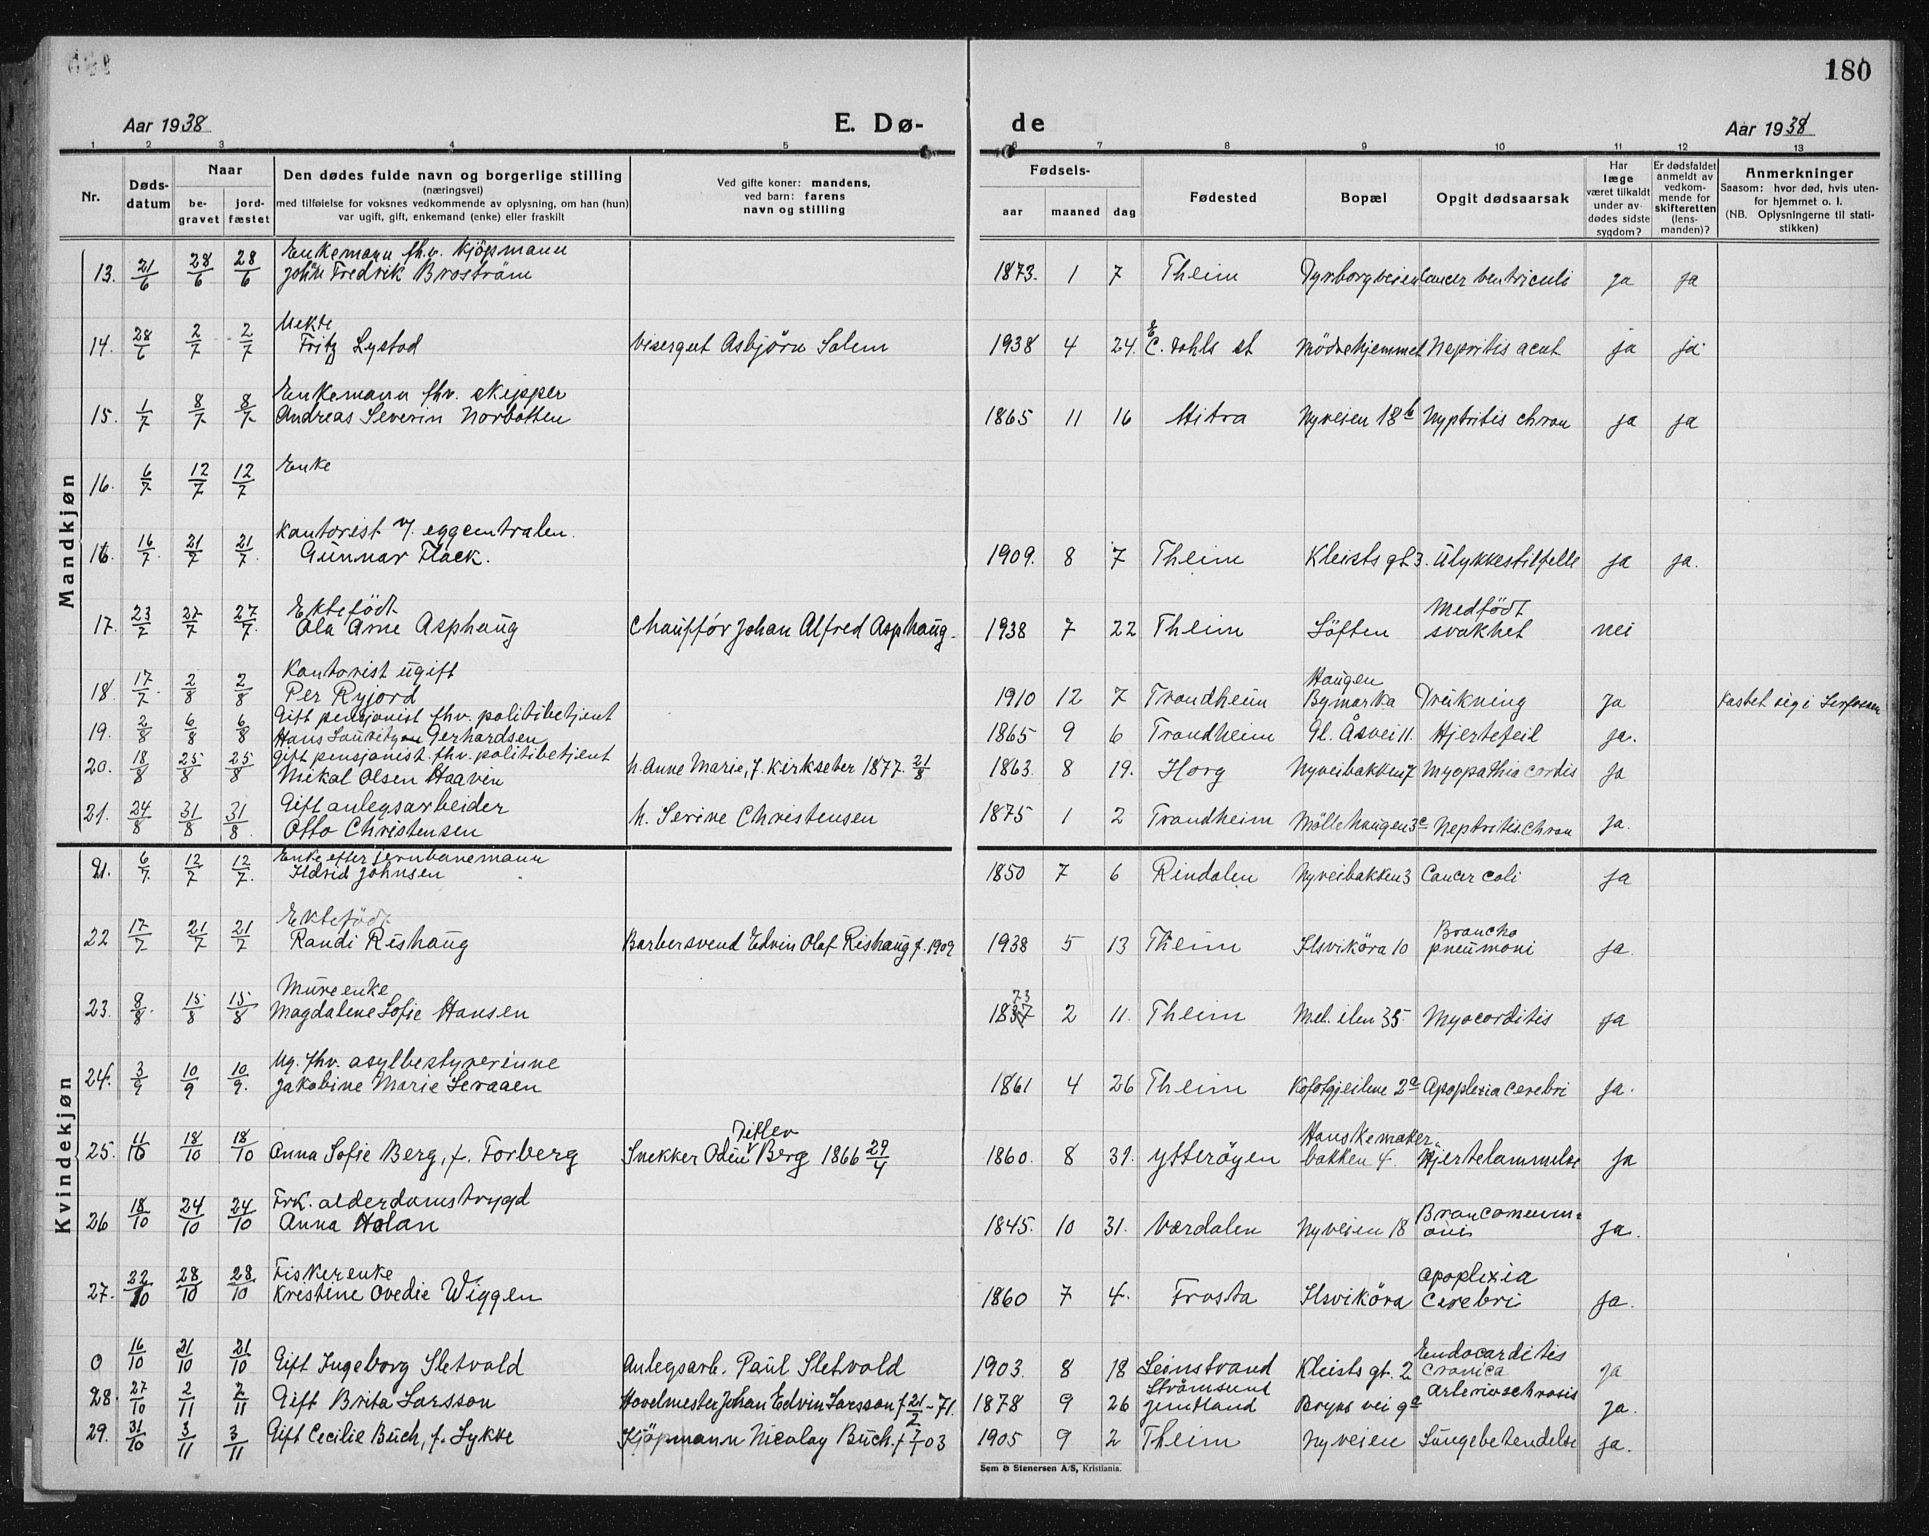 180
Aar 1938
E. Dø-
de
Aar 1938
1 2 3 4 5 6 7 8 9 10 11 12 13
Nr.
Døds-
datum
Naar
be-
gravet
jord-
fæstet
Den dødes fulde navn og borgerlige stilling
(næringsvei)
med tilføielse for voksnes vedkommende av oplysning, om han (hun)
var ugift, gift, enkemand (enke) eller fraskilt
Ved gifte koner: mandens,
ved barn: farens
navn og stilling
Fødsels-
aar maaned dag
Fødested
Bopæl
Opgit dødsaarsak
Har
læge
været tilkaldt
under av-
dødes sidste
sygdom?
Er dødsfaldet
anmeldt av
vedkom-
mende for
skifteretten
(lens-
manden)?
Anmerkninger
Saasom: hvor død, hvis uten-
for hjemmet o. l.
(NB. Oplysningerne til stati-
stikken)
Mandkjøn
Enkemann fhv. Kjöpmann
13. 21/6 28/6 28/6 Johan Fredrik Broström 1873. 1 7 Theim Dyrborgveien Cancer ventriculi ja ja
Uekte
14. 28/6 2/7 2/7 Fritz Lystad Visergut Asbjörn Solem 1938 4 24. E. C. Dahls st Mödrehjemmet Nepritis acut ja ja
Enkemann fhv. skipper
15. 1/7 8/7 8/7 Andreas Severin Norbotten 1865 11 16 Hitra Nyveien 18b Nyptritis chron ja ja
16. 6/7 12/7 12/7 Enke
Kontorist v. eggcentralen.
16. 16/7 21/7 21/7 Gunnar Flack. 1909. 8 7 Theim Kleists gt. 3. Ulykkestilfelle ja ja.
Ektefödt Medfödt
17. 23/7 27/7 27/7. Ola Arne Asphaug Chauffør Johan Alfred Asphaug. 1938 7 22 Theim Löften svakhet nei
Kontorist ugift Haugen
18. 17/7. 2/8 2/8 Per Ryjord 1910 12 7 Trondheim Bymarka Drukning ja Kastet sig i
Gift pensjonist fhv. politibetjent
19. 2/8 6/8 6/8 Hans Lauritzen Gerhardsen 1865 9 6 Trondheim Gl. Åsvei 11. Hjertefeil ja.
Gift pensjonist. fhv. politibetjent
20. 18/8 25/8 25/8 Mikal Olsen Haaven h. Anne Marie, f. Kirkseter 1877. 21/8 1863. 8 19. Horg Nyveibakken 7 Myopathia cordis ja
Gift anlegsarbeider
21. 24/8 31/8 31/8. Otto Christensen h. Serine Christensen 1875 1 2 Trondheim Möllehaugen 3c Neptritis chron ja.
Kvindekjøn
Enke efter jernbanemann
21. 6/7 12/7 12/7. Ildrid Johnsen 1850 7 6 Rindalen Nyveibakken 3 Cancer coli ja
Ektefödt Broncho
22 17/7 21/7 21/7 Randi Rishaug Barbersvend Edvin Olaf Rishaug f. 1909 1938 5 13 Theim Ilsviköra 10 pneumoni ja.
Murerenke 73
23. 8/8. 15/8 15/8 Magdalene Sofie Hansen 1837 2 11. Theim Mel. ilen 35. Myocorditis ja
Ug. fhv. asylbestyrerinne
24. 3/9 10/9 10/9. Jakobine Marie Seraaen 1861 4 26 Theim Apoplexia cerebri ja.
Ditlev Hanskemaker-
25. 11/10 18/10 18/10 Anna Sofie Berg, f. Forberg Snekker Odin Berg 1866 29/4 1860. 8 31. Ytterøyen bakken 4. Hjertelammelse ja
Frk. alderdomstrygd Broncomeum=
26 18/10 24/10 24/10 Anna Holan 1845. 10 31. Verdalen Nyveien 18 oni ja.
Fiskerenke Apoplexia
27. 22/10 28/10 28/10 Kristine Ovedie Wiggen 1860 7 4. Frosta Ilsviköra Cerebri ja.
Endocarditis
0 16/10 21/10 21/10 Gift Ingeborg Sletvold Anlegsarb. Paul Sletvold 1903. 8 18 Leinstrand Kleists gt. 2 Cronica ja
Strømsund Arterioschrosis
28. 27/10 2/11 2/11 Gift Brita Larsson Hovelmester Johan Edvin Larsson f 21/2 - 71. 1878 9 26 Jemtland Bryns vei 9a ja.
29. 31/10 3/11 3/11 Gift Cecilie Buch, f. Lykke Kjöpmann Nicolay Buch. f 7/1 03 1905 9 2 Theim Nyveien Lungebetendelse ja.
Sem & Stenersen A/S, Kristiania.